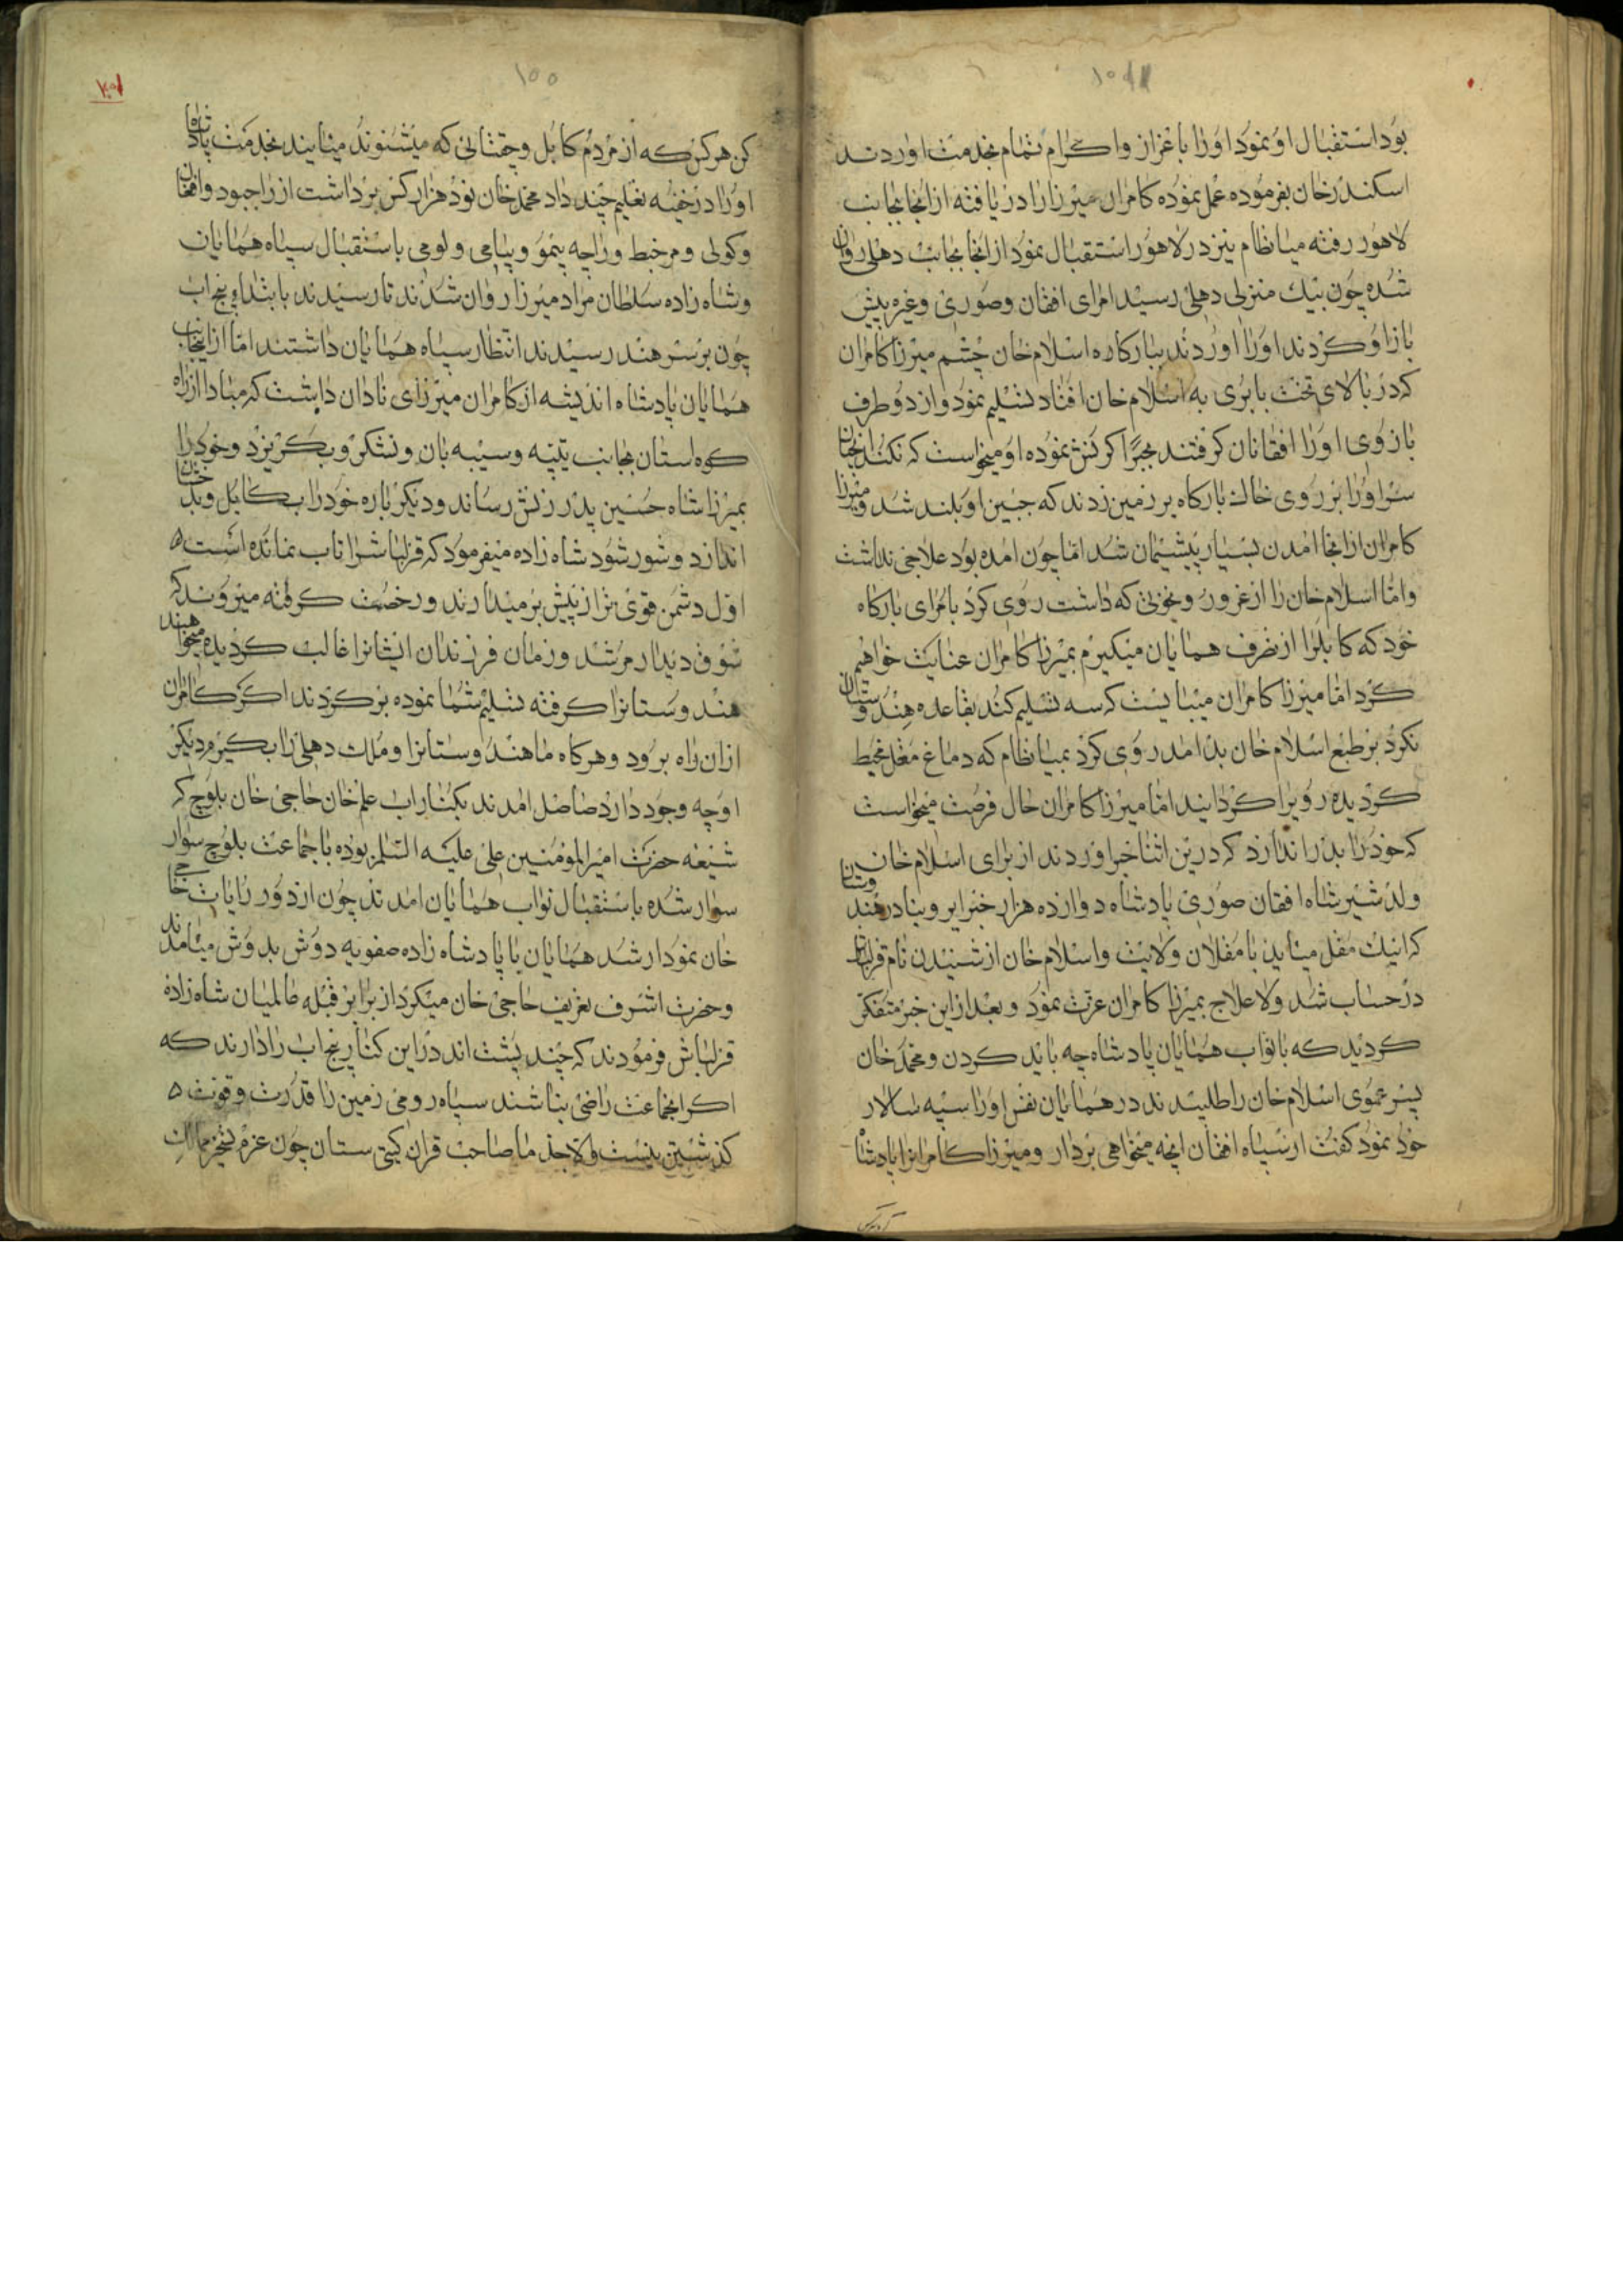 بود استقبال او نمود او را باعزاز و اکرام تمام بخدمت اوردند
اسکندر خان بفرموده عمل نموده کامران میرزا را دریافته از انجا بجانب
لاهور رفته میانظام نیز در لاهور استقبال نمود از انجا بجانب دهلی روان
شده چون بیک منزلی دهلی رسید امرای افغان و صوری و غیره پیش
باز او کردند او را اوردند ببارکاه اسلام خان چشم میرزا کامران
که در بالای تخت بابری به اسلام خان افتاد تسلیم نمود و از دو طرف
بازوی او را افقانان کرفتند مجبرا کرنش نموده او میخواست که نکند
سر او را بر روی خاک بارکاه بر زمین زدند که جبین او بلند شد و میرزا
کامران از انجا امدن بسیار پشیمان شد اما چون امده بود علاجی نداشت
واما اسلام خان را از غرور و نخوتی که داشت روی کرد بامرای بارکاه
خود که کابلرا از طرف همایان میکیرم بمیرزا کامران عنایت خواهیم
کرد اما میرزا کامران میبایست که سه تسلیم کند بقاعده هندوستان
نکرد بر طبع اسلام خان بد امد روی کرد بمیانظام که دماغ مغل مخبط
کردیده رویرا کردانید اما میرزا کامران حال فرصت میخواست
که خود را بدر اندازد که درین اثنا خبر اوردند از برای اسلام خان
ولد شیر شاه افقان صوری پادشاه دوازده هزار خنزایر وبنا در هندوستان
که اینک مقل میاید با مقلان ولایت و اسلام خان از شنیدن نام قزلباش
در حساب شد ولاعلاج بمیرزا کامران عزت نمود و بعد از این خبر متفکر
کردید که بانواب همایان پادشاه چه باید کردن و محمد خان
پسر عموی اسلام خان را طلبیدند در همایان نفس او را سپه سالار
خود نمود کفت از سپاه افقان انچه میخواهی بردار و میرزا کامرانرا پادشا
کن هر کس که از مردم کابل و چقتائی که میشنوند میایند بخدمت پادشاه
او را در خفیه تعلیم چند داد محمد خان نود هزار کس برداشت از راجبود و افقان
وکولی و مرخبط و راجه پتمو و پیامی و لومی باستقبال سپاه همایان
وشاه زاده سلطان مراد میرزا روان شدند تا رسیدند بابتدای پنجاب
چون بر سر هند رسیدند انتظار سپاه همایان داشتند اما از انجانب
همایان پادشاه اندیشه از کامران میرزای نادان داشت که مبادا از راه
کوهستان بجانب پتپه وسیبه بان ونتنکر و بکریزد و خود را
بمیرزا شاه حسین پدر زنش رساند و دیکر باره خود را بکابل و بدخشان
اندازد و شور شود شاه زاده میفرمود که قزلباشرا تاب نمانده است ه
اول دشمن قوی تر از پیش برمیدارند و رخصت کرفته میروند که
شوق دیدار مرشد و زمان فرزندان ایشانرا غالب کردیده میخواهند
هندوستانرا کرفته تسلیم شما نموده برکردند اکر کامران
ازان راه برود و هرکاه ما هندوستانرا و ملک دهلی را بکیرم دیکر
او چه وجود دارد حاصل امدند بکنار اب علم خان حاجی خان بلوچ که
شیعه حضرت امیرالمؤمنین علی علیه السلم بوده با جماعت بلوچ سوار
سوار شده باستقبال نواب همایان امدند چون از دور رایات حاجی
خان نمودار شد همایان با پادشاه زاده صفویه دوش بدوش میامدند
وحضرت اشرف تعریف حاجی خان میکرد از برابر قبله عالمیان شاه زاده
قزلباش فرمودند که چند پشت اند در این کنار پنجاب را دارند که
اکر انجماعت راضی نباشند سپاه رومی زمین را قدرت و قوت ه
کذشتین نیست والاجد ما صاحب قران کیتی ستان چون عزم تسخیر ممالک